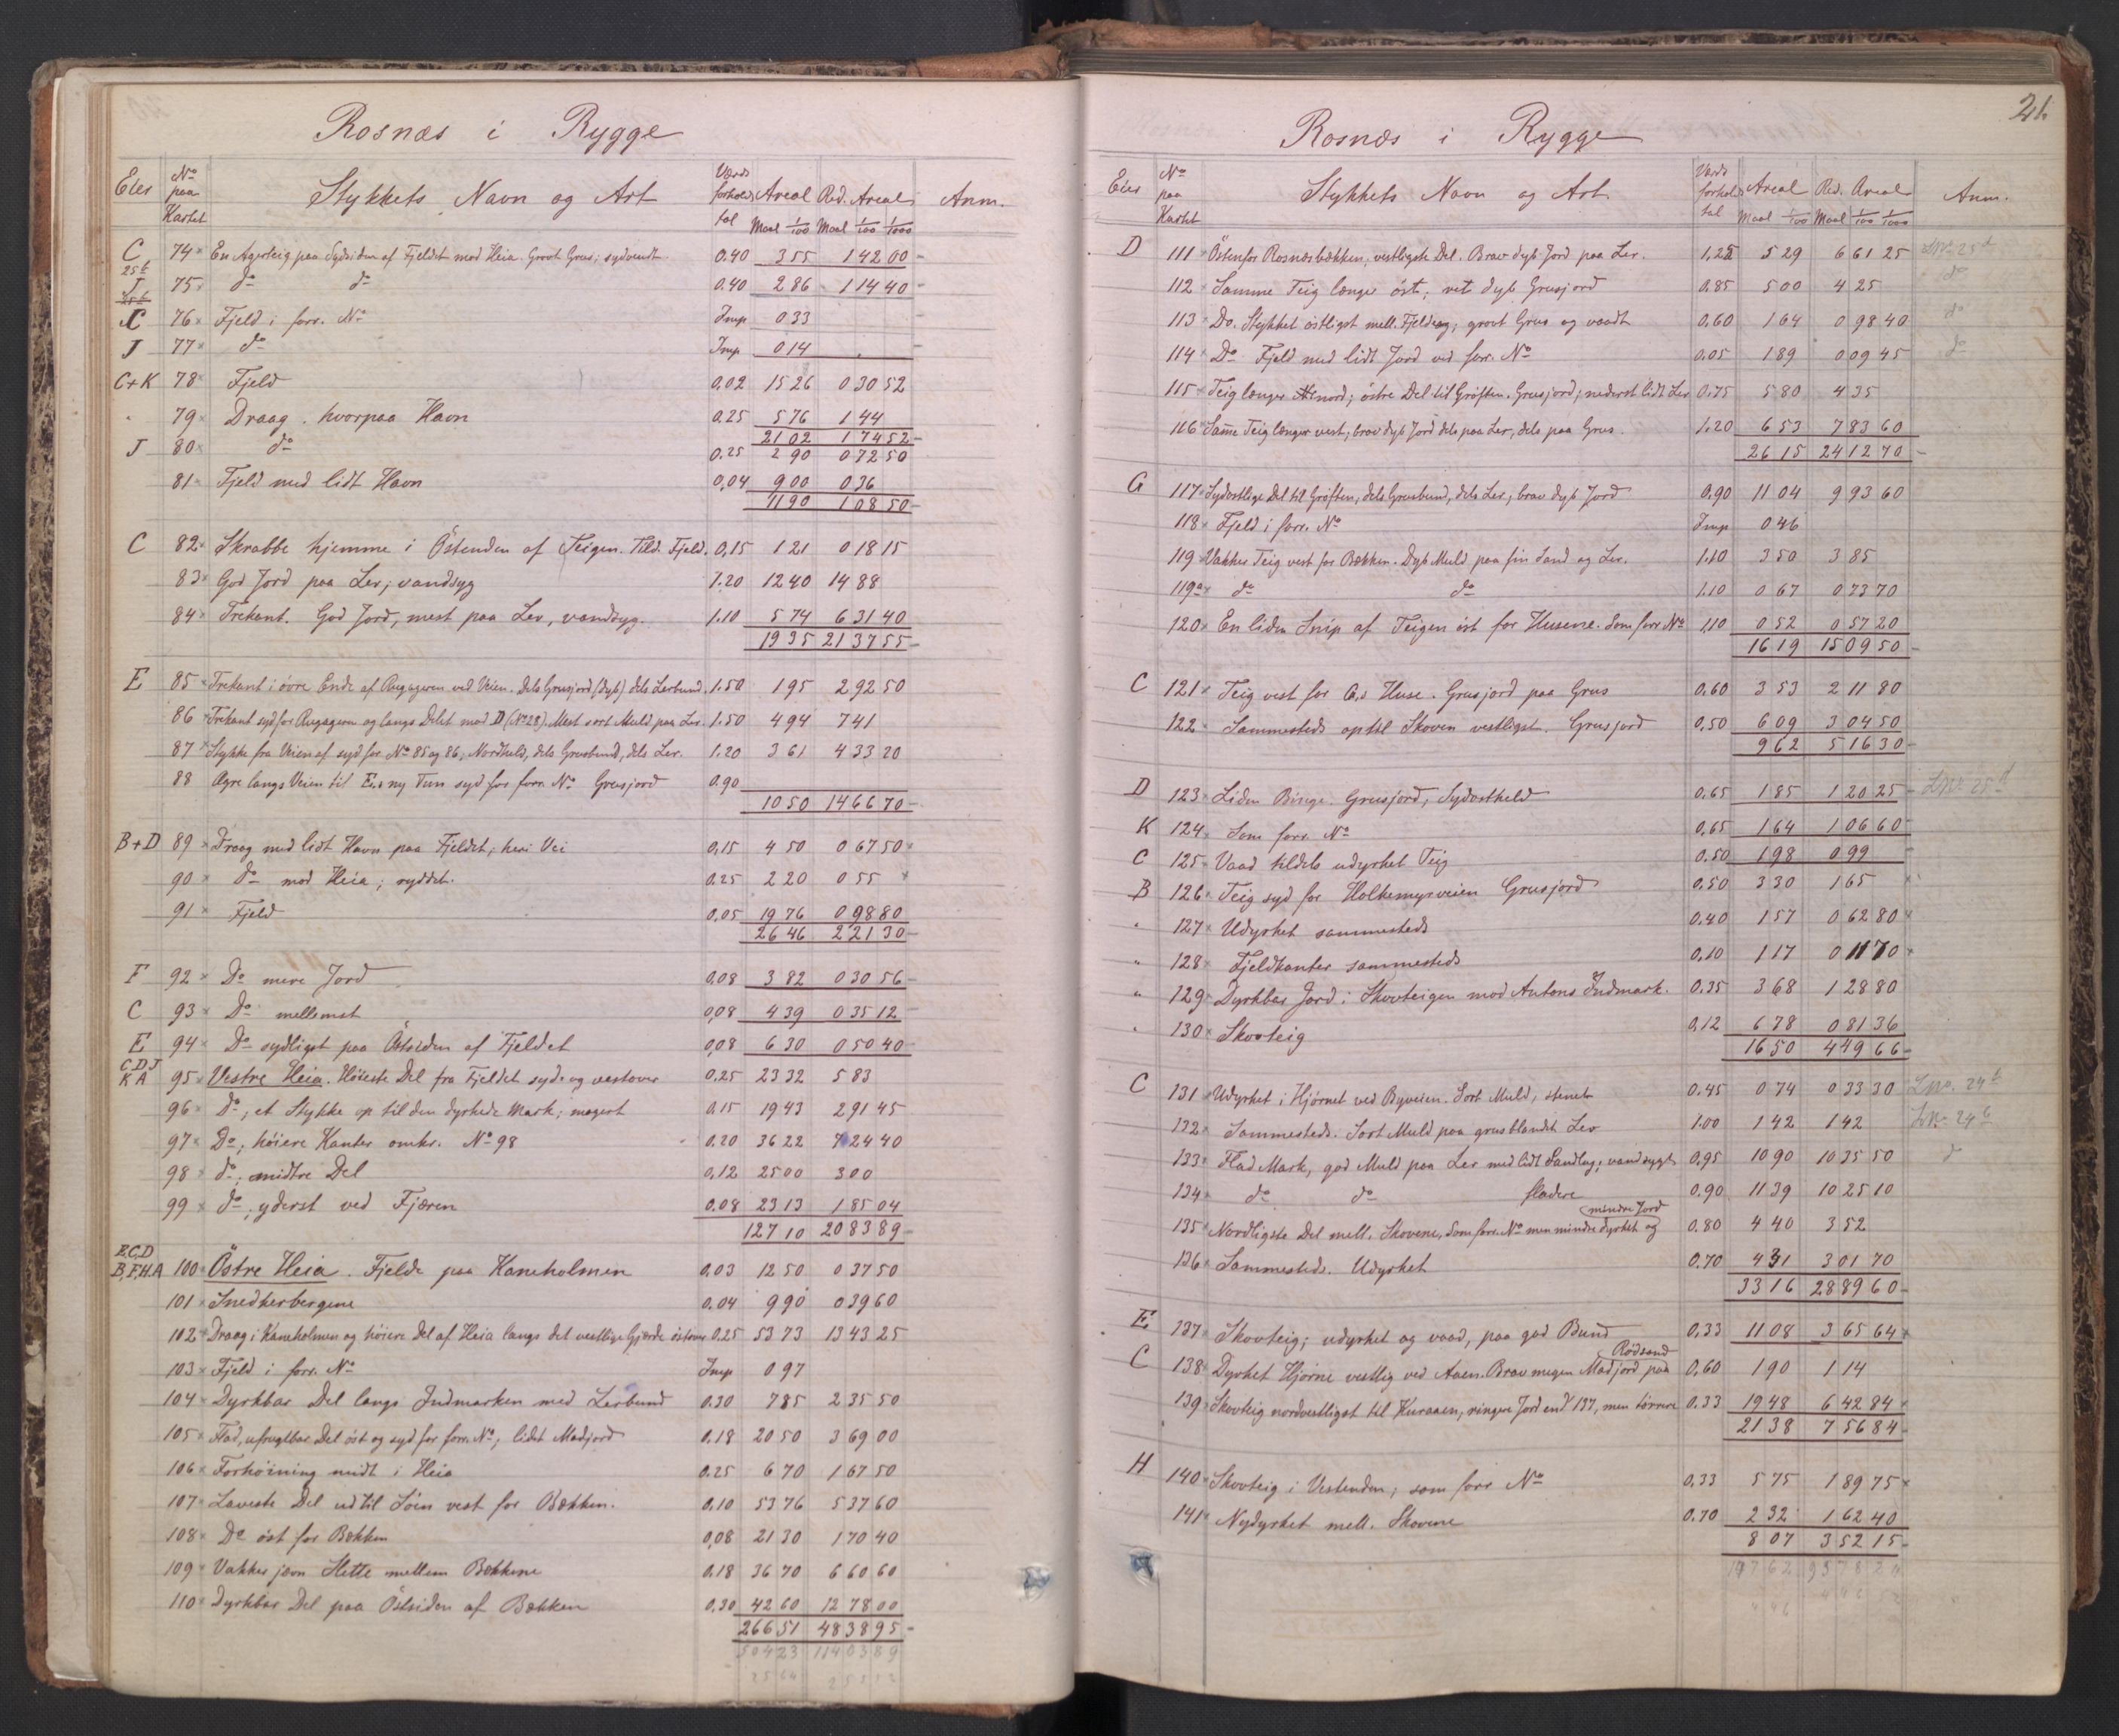 Rosnæs i Rygge
Eier No paa Kartet Stykkets Navn og Art Værdiforholdstal Areal Red. Areal Anm.
Maal 1/100 Maal 1/100 1/1000
C 74 En Agerteig paa Sydsiden af Fjeldet mod Heia. Grovt Grus; sydvendt. 0.40 3 55 1 42 00
25 d
J 75 do do 0.40 2 86 1 14 40
C 76 Fjeld i forr. No Imp 0 33
J 77 do Imp 0 14
C+K 78 Fjeld 0,02 15 26 0 30 52
" 79 Draag, hvorpaa Havn 0.25 5 76 1 44
21 02 1 74 52
J 80 do 0.25 2 90 0 72 50
81 Fjeld med lidt Havn 0,04 9 00 0 36
11 90 1 08 50
C 82 Skrabbe hjemme i Östenden af Teigen. Tild. Fjeld. 0,15 1 21 0 18 15
83 God Jord paa Ler; vandsyg 1.20 12 40 14 88
84 Trekant. God Jord, mest paa Ler, vandsyg. 1.10 5 74 6 31 40
19 35 21 37 55
E 85 Trekant i övre Ende af Rugageren ved Veien. dels Grusjord (dyb) dels Lerbund. 1.50 1 95 2 92 50
86 Trekant syd for Rugageren og langs Delet mod D (No 28). Mest sort Muld paa Ler. 1.50 4 94 7 41
87 Stykke fra Veien af syd for No 85 og 86; Nordheld, dels Grusbund, dels Ler. 1.20 3 61 4 33 20
88 Agre langs Veien til E.s ny Tun syd for forr. No Grusjord 0.90
10 50 14 66 70
B+D 89 Draag med lidt Havn paa Fjeldet; heri Vei 0,15 4 50 0 67 50
90 do mod Heia; ryddet. 0.25 2 20 0 55
91 Fjeld 0,05 19 76 0 98 80
26 46 2 21 30
F 92 Do mere Jord 0.08 3 82 0 30 56
C 93 Do mellemst 0,08 4 39 0 35 12
E 94 Do sydligst paa Östsiden af Fjeldet 0,08 6 30 0 50 40
C.D J
K A 95 Vestre Heia. Höieste Del fra Fjeldet syd og vestover 0.25 23 32 5 83
96 Do; et Stykke op til den dyrkede Mark; magert 0.15 19 43 2 91 45
97 Do; höiere Kanter omkr. No 98 0.20 36 22 7 24 40
98 do; midtre Del 0,12 25 00 3 00
99 do; yderst ved Fjæren 0.08 23 13 1 85 04
127 10 20 83 89
B,C,D
B,F,H.A 100 Östre Heia. Fjelde paa Kaneholmen 0,03 12 50 0 37 50
101 Snedkerbergene 0.04 9 90 0 39 60
102 Draag i Kaneholmen og höiere Del af Heia langs det vestlige Gjærde östover 0.25 53 73 13 43 25
103 Fjeld i forr. No Imp 0 97
104 Dyrkbar Del langs Indmarken med Lerbund 0.30 7 85 2 35 50
105 Flad, ufrugtbar Del öst og syd for forr. No; lidet Madjord 0,18 20 50 3 69 00
106 Forhöining midt i Heia 0.25 6 70 1 67 50
107 Laveste Del ud til Söen vest for Bækken. 0,10 53 76 5 37 60
108 Do öst for Bækken 0,08 21 30 1 70 40
109 Vakker jævn Slette mellem Bækkene 0.18 36 70 6 60 60
110 Dyrkbar Del paa Östsiden af Bækken 0,30 42 60 12 78 00
266 51 48 38 95
504 23 114 03 89
21.
Rosnæs i Rygge
Eier No paa Kartet Stykkets Navn og Art Værdiforholdstal Areal Red. Areal Anm.
Maal 1/100 Maal 1/100 1/1000
D 111 Östenfor Rosnæsbækken, vestligste Del. Brav dyb Jord paa Ler. 1,25 5 29 6 61 25 LNo 25 d
112 Samme Teig længer öst; vet dyb Grusjord 0.85 5 00 4 25 do
113 Do. Stykket östligst mell. Fjeldeog; grovt Grus og vaadt 0,60 1 64 0 98 40 do
114 Do Fjeld med lidt Jord ved forr. No 0.05 1 89 0 09 45 do
115 Teig længer nord; östre Del til Gröften. Grusjord; nederst lidt Ler 0.75 5 80 4 35
116 Samme Teig længer vest; brav dyb Jord dels paa Ler, dels paa Grus. 1.20 6 53 7 83 60
26 15 24 12 70
G 117 Sydostlige Del til Gröften, dels Grusbund, dels Ler, brav dyb Jord 0.90 11 04 9 93 60
118 Fjeld i forr. No Imp 0 46
119 Vakker Teig vest for Bækken. Dyb Muld paa fin Sand og Ler. 1.10 3 50 3 85
119a do do 1.10 0 67 0 73 70
120 En liden Snip af Teigen öst for Husene. Som forr No 1,10 0 52 0 57 20
16 19 15 09 50
C 121 Teig vest for G.s Huse. Grusjord paa Grus 0,60 3 53 2 11 80
122 Sammesteds optil Skoven vestligst. Grusjord 0,50 6 09 3 04 50
9 62 5 16 30
D 123 Liden Binge. Grusjord, Sydostheld 0.65 1 85 1 20 25 LNo 25 d
K 124 Som forr. No 0,65 1 64 1 06 60
C 125 Vaad tildels udyrket Teig 0.50 1 98 0 99
B 126 Teig syd for Holkemyrveien Grusjord 0,50 3 30 1 65
" 127 Udyrket sammesteds 0.40 1 57 0 62 80
" 128 Fjeldkanter sammesteds 0,10 1 17 0 11 70
" 129 Dyrkbar Jord i Skovteigen mod Antons Indmark. 0.35 3 68 1 28 80
" 130 Skovteig 0,12 6 78 0 81 36
16 50 4 49 66
C 131 Udyrket i Hjörnet ved Byveien. Sort Muld, stenet 0.45 0 74 0 33 30 LNo. 24 b
132 Sammesteds. Sort Muld paa grusblandt Ler 1.00 1 42 1 42 LNo 24 b
133 Flad Mark, god Muld paa Ler med lidt Sandlag; vandsygt 0,95 10 90 10 35 50 do
134 do do fladere 0.90 11 39 10 25 10
mindre Jord
135 Nordligste Del mell. Skovene, Som forr. No men mindre dyrket og 0,80 4 40 3 52
136 Sammesteds. Udyrket 0.70 4 31 3 01 70
33 16 28 89 60
E 137 Skovteig; udyrket og vaad, paa god Bund 0,33 11 08 3 65 64
Rödsand
C 138 Dyrket Hjörne vestlig ved Aaen. Brav megen Madjord paa 0,60 1 90 1 14
139 Skovteig nordvestligst til Kuraaen, ringere Jord end 137, men törrere 0.33 19 48 6 42 84
21 38 7 56 84
H 140 Skovteig i Vestenden; som forr No 0,33 5 75 1 89 75
141 Nydyrket mell. Skovene 0.70 2 32 1 62 40
8 07 3 52 15